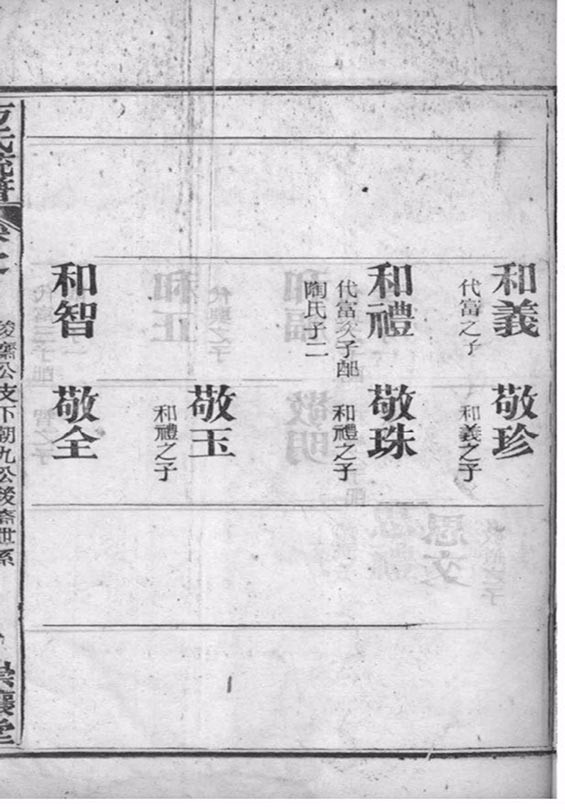 和義
代富之子
敬珍
和義之子
和禮
代富次子配
陶氏子二
敬珠
和禮之子
敬玉
和禮之子
和智
敬全
公支下朝九公後裔世系